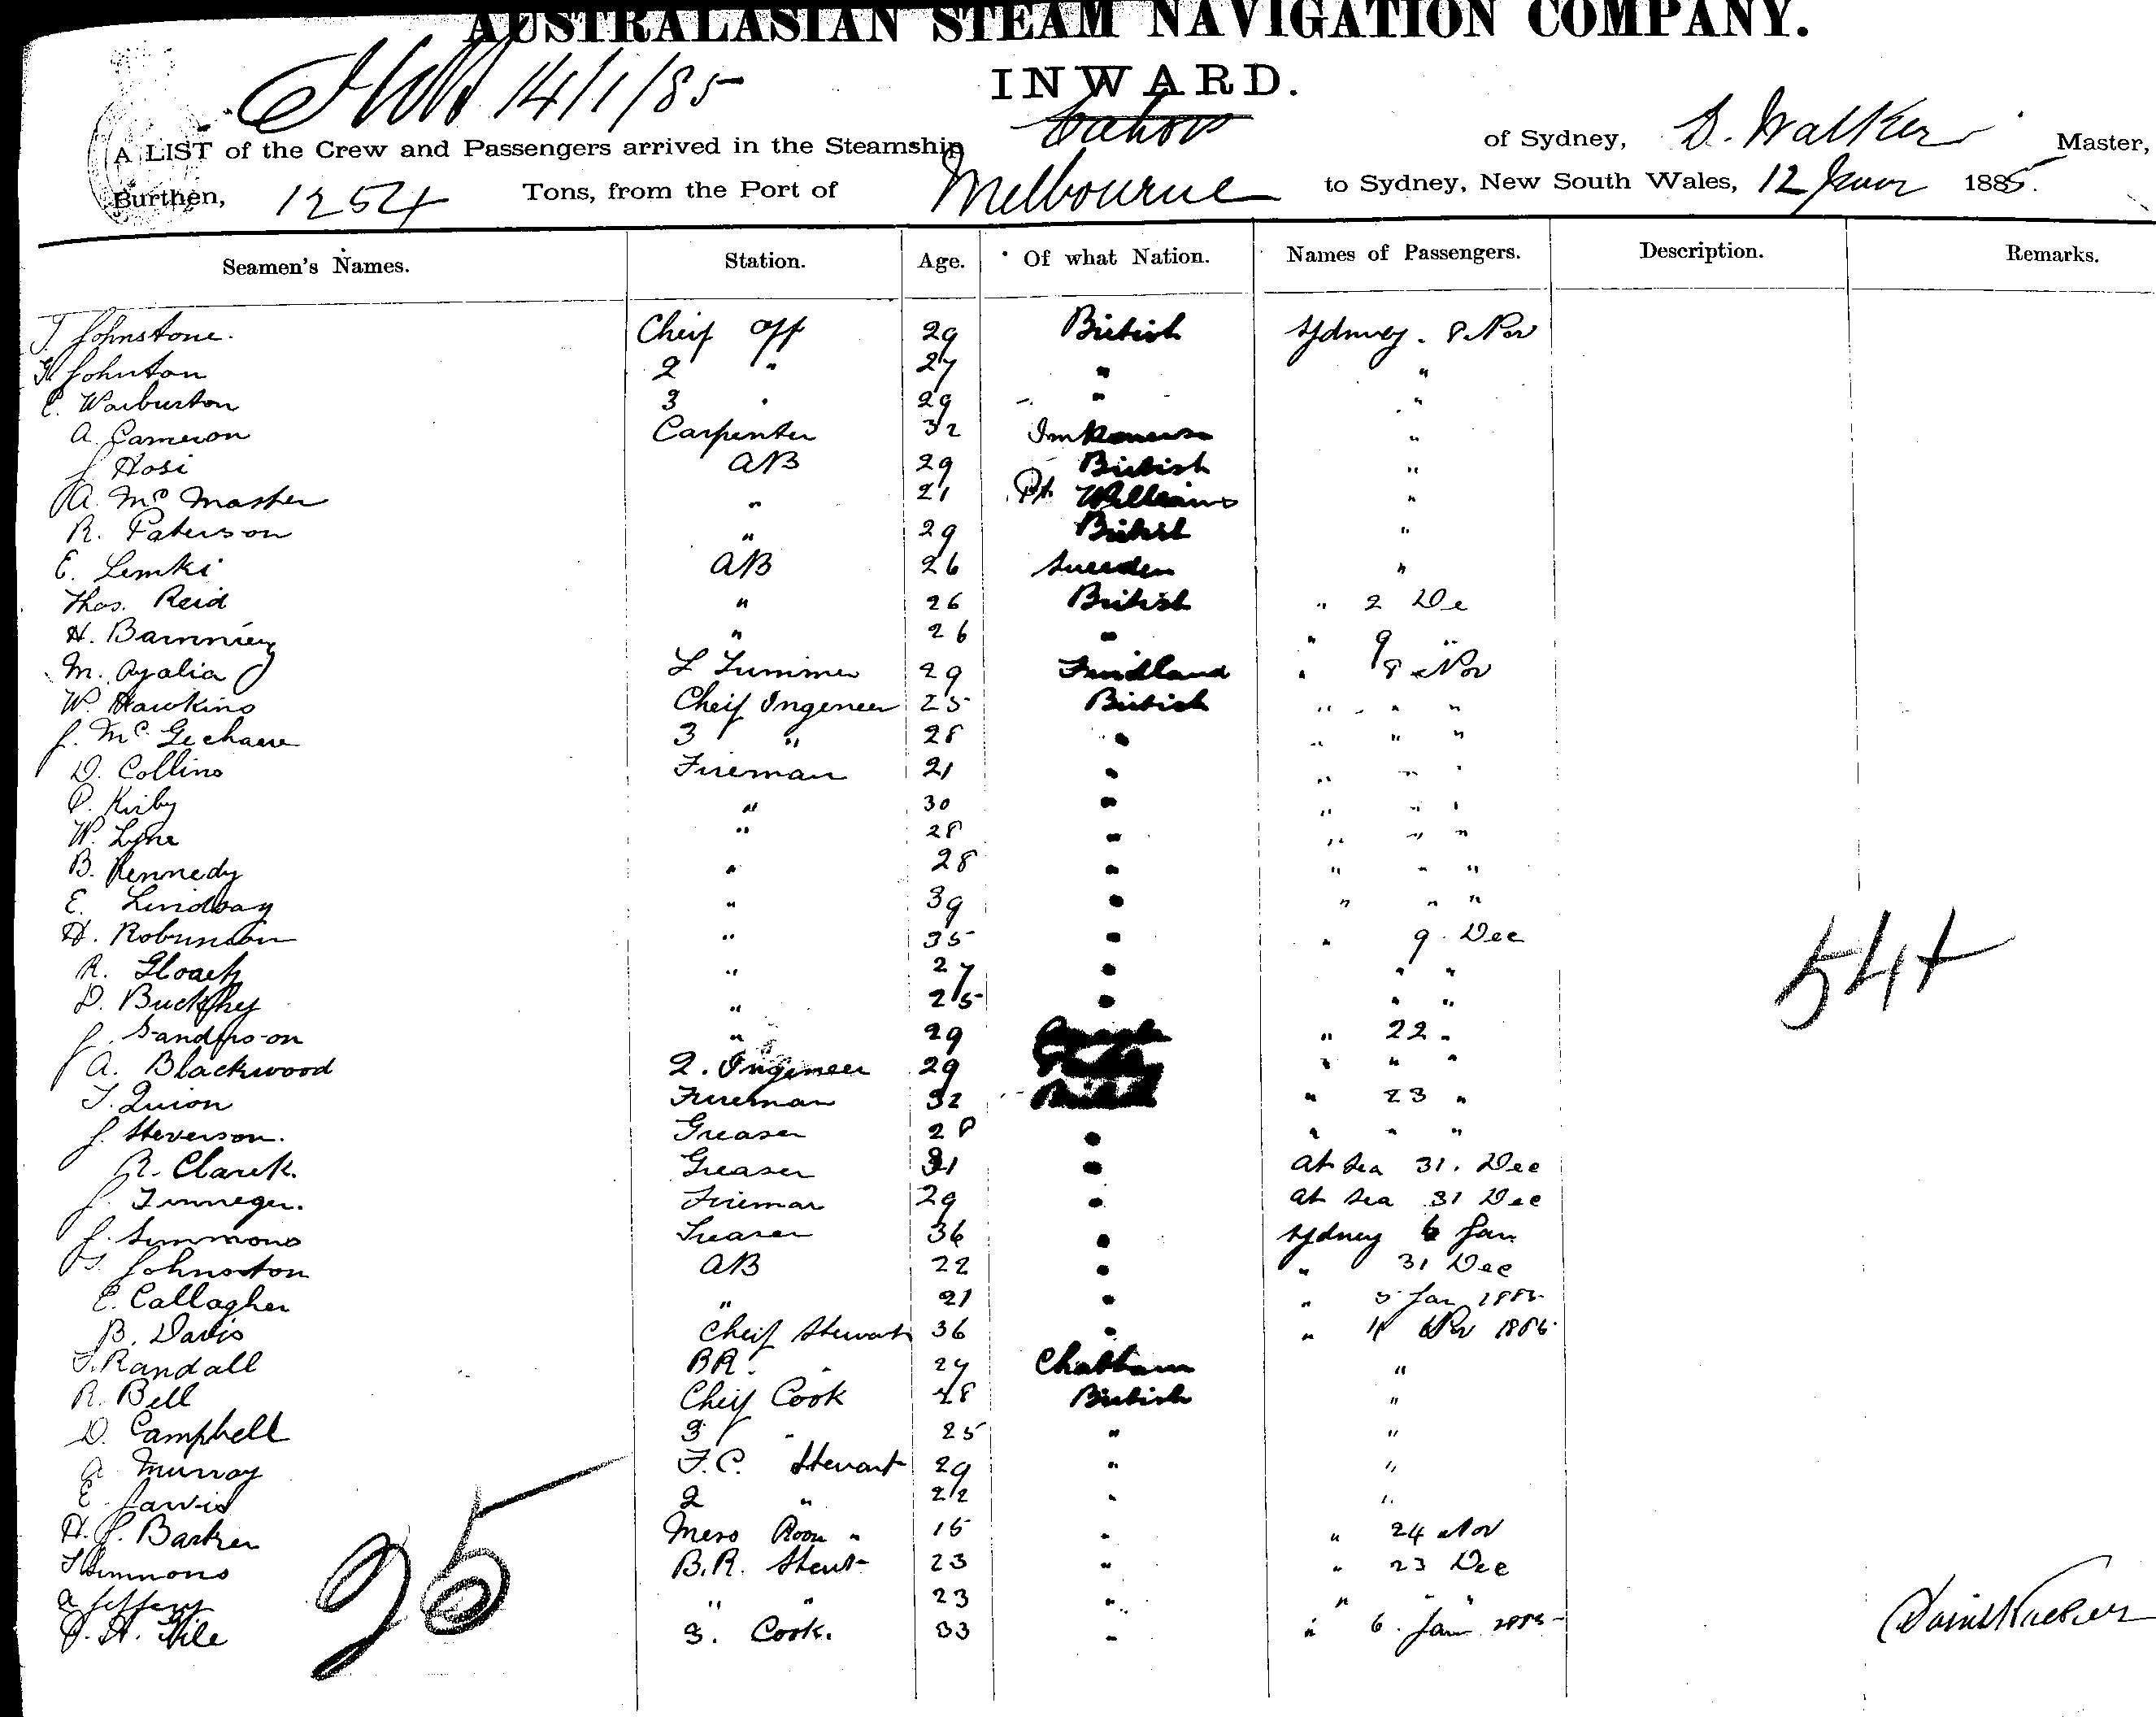 AUSTRALASIAN STEAM NAVIGATION COMPANY.
INWARD.
14/1/85
A LIST of the Crew and Passengers arrived in the Steamship of Sydney, D. Walker Master,
Burthen, 1254 Tons, from the Port of Melbourne to Sydney, New South Wales, 12 1885.
Seamen's Names. Station. Age. Of what Nation. Names of Passengers. Description. Remarks.
J. Johnstone. Cheif Off 29 British Sydney. 8 Nov
Johnston 2 " 27 " "
C. Warburton 3 " 29 " "
A. Cameron Carpenter 32 "
J. Hosi AB 29 British "
A. Mc Master " 21 Pt Williams "
R. Paterson " 29 British "
E. Lemki AB 26 Sweeden "
Thos. Reid " 26 British " 2 De
H. " 26 " " 9 "
M. Ayalia 29 Findland " 8 Nov
W. Hawkins Cheif Ingeneer 25 British " " "
J. Mc 3 " 28 " " " "
D. Collins Fireman 21 " " " "
P. Kirby " 30 " " " "
W. Lyne " 28 " " " "
B. Kennedy " 28 " " " "
E. Lindsay " 39 " " " "
H. Robinson " 35 " " 9. Dec
R. " 27 " " "
D. " 25 " " "
J. Sanderson " 29 " 22 "
A. Blackwood 2. Ingeneer 29 " " "
T. Quion Fireman 32 " 23 "
J. Steverson. Greaser 28 " " " "
R. Clark. Greaser 31 " at Sea 31. Dec
J. Finneger. Fireman 29 " at Sea 31 Dec
J. Simmons Greaser 36 " Sydney 6 Jan
Johnston AB 22 " " 31 Dec
E. Callagher " 21 " " 5 Jan 1885
B. Davis Cheif Stewart 36 " "
T. Randall BR. " 24 Chatham "
R. Bell Cheif Cook 28 British "
D. Campbell 3 " 25 " "
A. Murray F.C. Stewart 29 " "
E. Jarvis 2 " 22 " "
H. J. Barker Mess Room " 15 " " 24 Nov
Simmons B.R. Stewt 23 " " 23 Dec
A. Jeffery " " 23 " " " "
H. 3. Cook. 33 " " 6. Jan 1885
54
95